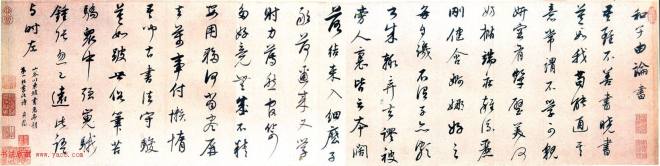 和子由論書
吾雖不善書曉書
莫如我苟能通其
意常謂不學可貌
妍容有顰璧美何
妨橢端莊雜流麗
剛健含婀娜好之
每自譏不獨子亦頗
書成輒棄去謬被
旁人裹體勢本闊
落結束入細麼子
敢荷邇來又學
射力薄愁官笴
多好竟無成不精
安用夥何當盡屏
去萬事付懶惰
吾聞古書法守駿
莫如跛世俗筆苦
驕衆中強嵬騀
鍾張忽已遠此語
與時左